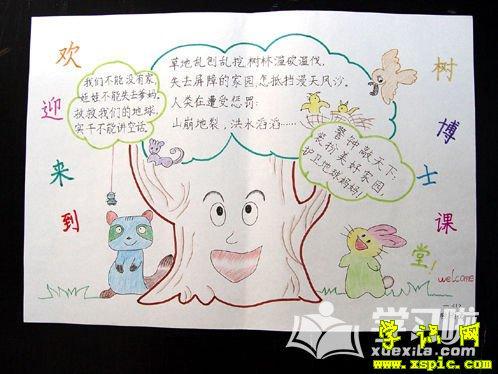 欢迎来到
树博士课堂！
welcome
我们不能没有家，
娃娃不能失去爹妈。
拯救我们的地球，
实干不能讲空话。
草地乱刨乱挖，树林滥砍滥伐，
失去屏障的家园，怎抵挡漫天风沙。
人类在遭受惩罚：
山崩地裂，洪水滔滔……
警钟敲天下：
装扮美好家园，
护卫地球妈妈！
学习啦
xuexila.com
学识网
www.xspic.com